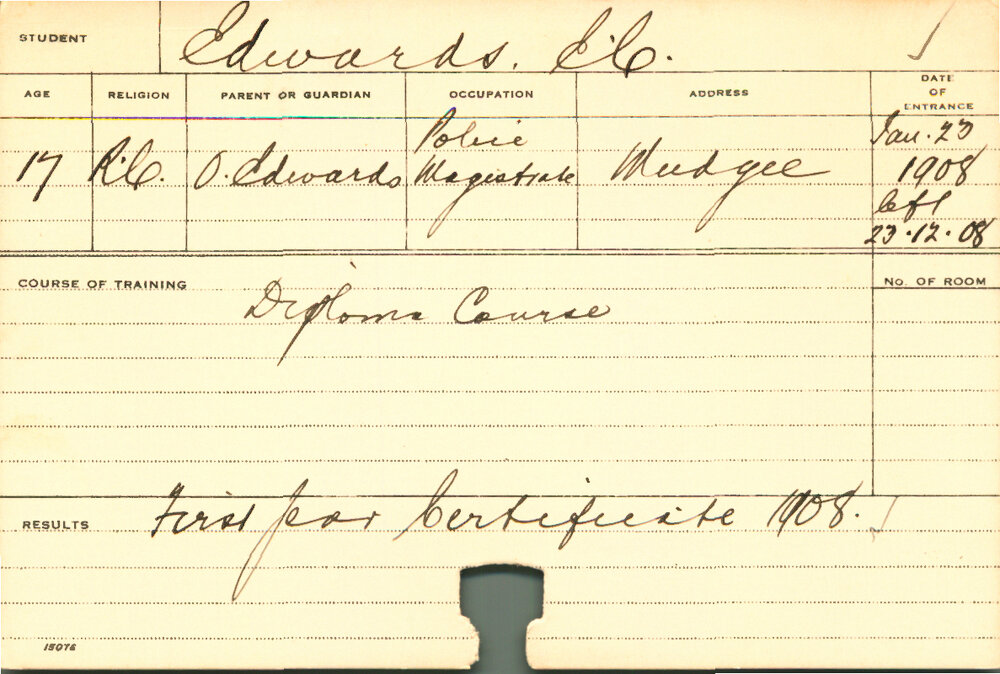 STUDENT Edwards. E.C.
AGE RELIGION PARENT OR GUARDIAN OCCUPATION ADDRESS DATE OF ENTRANCE
17 R.C. O. Edwards Police Magistrate Mudgee Jan. 23 1908
left
23.12.08
COURSE OF TRAINING Diploma Course
No. OF ROOM
RESULTS First Year Certificate 1908.
15076